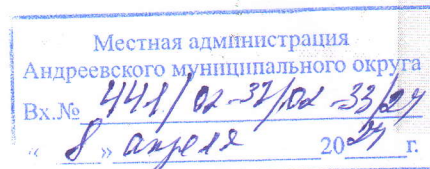 Местная администрация
Андреевского муниципального округа
Вх.№ 441/02-32/02-33/24
« 8 » апреля 2024 г.